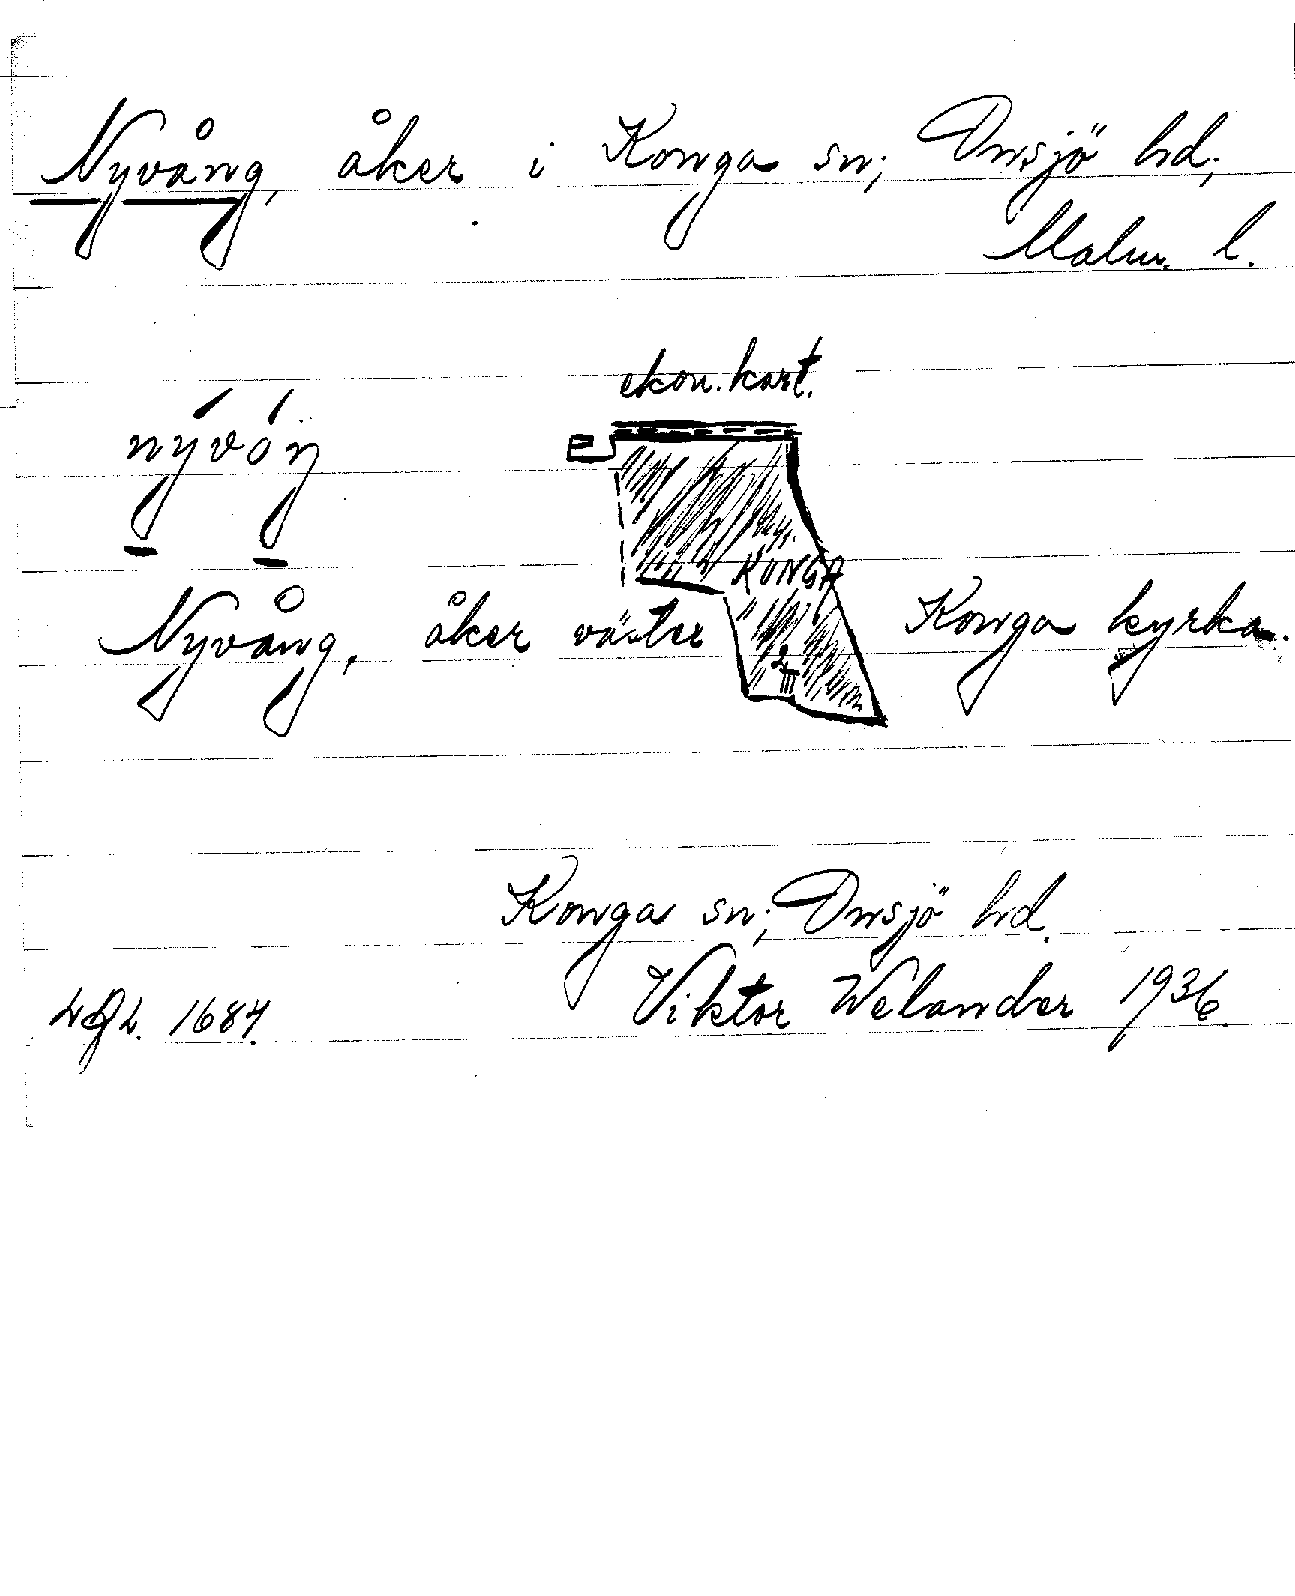 Nyvång, åker i Konga sn; Onsjö hd;
Malm. l.
ekon. kart.
nývóŋ
KONGA
Nyvång, åker väster Konga kyrka.
Konga sn; Onsjö hd.
Viktor Welander 1936.
1684.